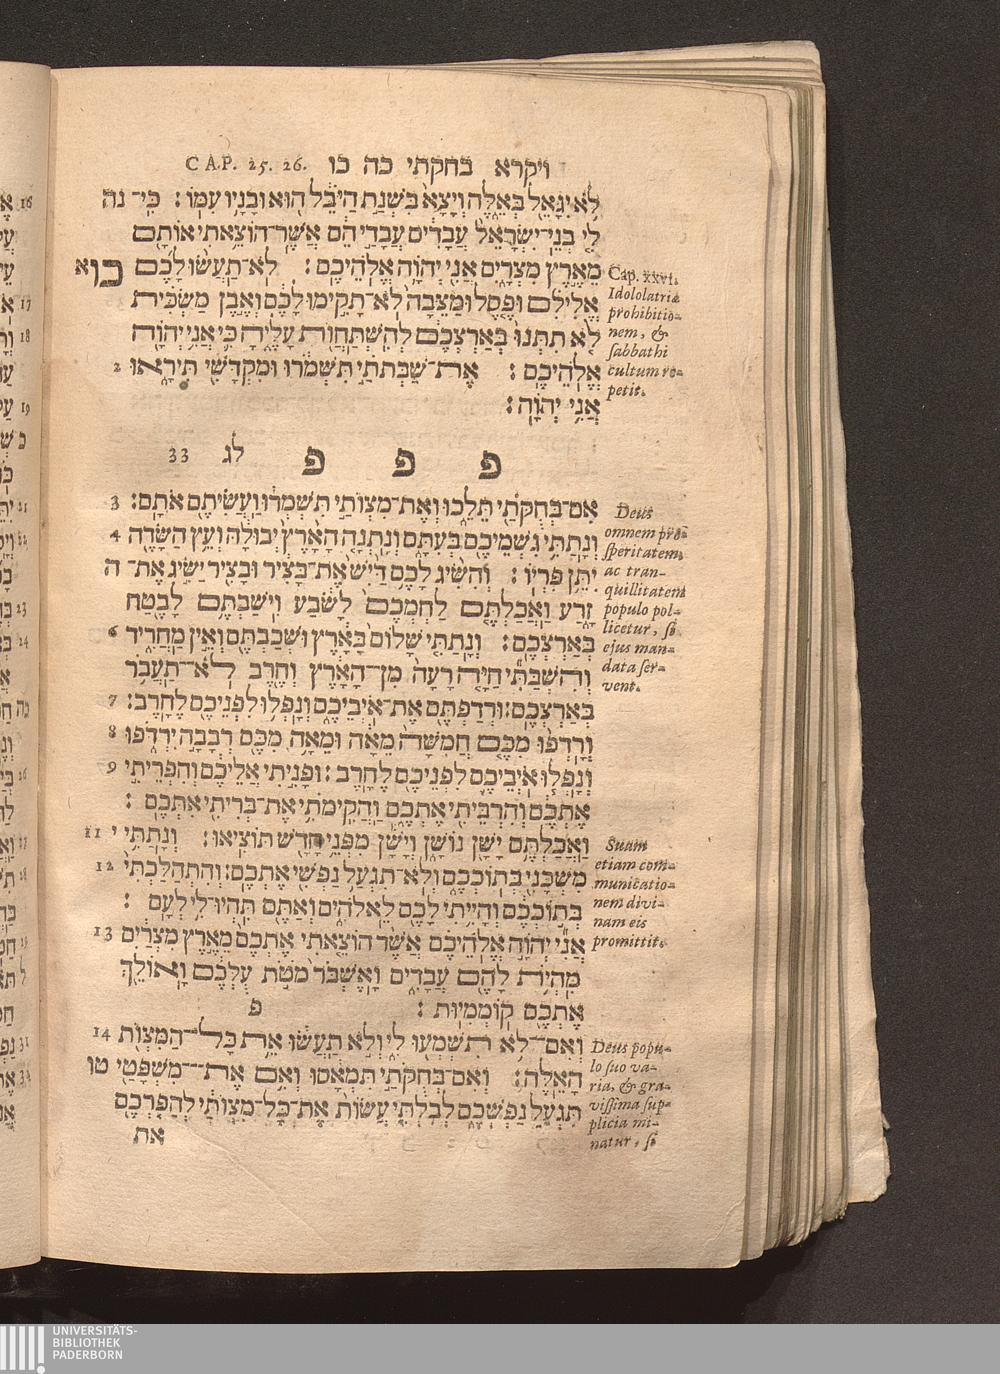 ויקרא בחקתי כה כו CAP. 25. 26.
לֹא יִגָּאֵל בְּאֵלֶּה וְיָצָא בִּשְׁנַת הַיֹּבֵל הוּא וּבָנָיו עִמּוֹ׃ כִּי־ נה
לִי בְנֵי־יִשְׂרָאֵל עֲבָדִים עֲבָדַי הֵם אֲשֶׁר־הוֹצֵאתִי אוֹתָם
מֵאֶרֶץ מִצְרָיִם אֲנִי יְהוָה אֱלֹהֵיכֶם׃ לֹא־תַעֲשׂוּ לָכֶם כו א
אֱלִילִם וּפֶסֶל וּמַצֵּבָה לֹא־תָקִימוּ לָכֶם וְאֶבֶן מַשְׂכִּית
לֹא תִתְּנוּ בְּאַרְצְכֶם לְהִשְׁתַּחֲוֹת עָלֶיהָ כִּי אֲנִי יְהוָה
אֱלֹהֵיכֶם׃ אֶת־שַׁבְּתֹתַי תִּשְׁמֹרוּ וּמִקְדָּשִׁי תִּירָאוּ 2
אֲנִי יְהוָה׃
Cap. xxvi.
Idololatriæ
prohibitio-
nem, &
sabbathi
cultum re-
petit.
פ פ פ לג 33
אִם־בְּחֻקֹּתַי תֵּלֵכוּ וְאֶת־מִצְוֹתַי תִּשְׁמְרוּ וַעֲשִׂיתֶם אֹתָם׃ 3
וְנָתַתִּי גִשְׁמֵיכֶם בְּעִתָּם וְנָתְנָה הָאָרֶץ יְבוּלָהּ וְעֵץ הַשָּׂדֶה 4
יִתֵּן פִּרְיוֹ׃ וְהִשִּׂיג לָכֶם דַּיִשׁ אֶת־בָּצִיר וּבָצִיר יַשִּׂיג אֶת־ ה
זָרַע וַאֲכַלְתֶּם לַחְמְכֶם לָשֹׂבַע וִישַׁבְתֶּם לָבֶטַח
בְּאַרְצְכֶם׃ וְנָתַתִּי שָׁלוֹם בָּאָרֶץ וּשְׁכַבְתֶּם וְאֵין מַחֲרִיד 6
וְהִשְׁבַּתִּי חַיָּה רָעָה מִן־הָאָרֶץ וְחֶרֶב לֹא־תַעֲבֹר
בְּאַרְצְכֶם׃ וּרְדַפְתֶּם אֶת־אֹיְבֵיכֶם וְנָפְלוּ לִפְנֵיכֶם לֶחָרֶב׃ 7
וְרָדְפוּ מִכֶּם חֲמִשָּׁה מֵאָה וּמֵאָה מִכֶּם רְבָבָה יִרְדֹּפוּ 8
וְנָפְלוּ אֹיְבֵיכֶם לִפְנֵיכֶם לֶחָרֶב׃ וּפָנִיתִי אֲלֵיכֶם וְהִפְרֵיתִי 9
אֶתְכֶם וְהִרְבֵּיתִי אֶתְכֶם וַהֲקִימֹתִי אֶת־בְּרִיתִי אִתְּכֶם׃
וַאֲכַלְתֶּם יָשָׁן נוֹשָׁן וְיָשָׁן מִפְּנֵי חָדָשׁ תּוֹצִיאוּ׃ וְנָתַתִּי י 11
מִשְׁכָּנִי בְּתוֹכְכֶם וְלֹא־תִגְעַל נַפְשִׁי אֶתְכֶם׃ וְהִתְהַלַּכְתִּי 12
בְּתוֹכְכֶם וְהָיִיתִי לָכֶם לֵאלֹהִים וְאַתֶּם תִּהְיוּ־לִי לְעָם׃
אֲנִי יְהוָה אֱלֹהֵיכֶם אֲשֶׁר הוֹצֵאתִי אֶתְכֶם מֵאֶרֶץ מִצְרַיִם 13
מִהְיֹת לָהֶם עֲבָדִים וָאֶשְׁבֹּר מֹטֹת עֻלְּכֶם וָאוֹלֵךְ
אֶתְכֶם קוֹמְמִיּוּת׃ פ
וְאִם־לֹא תִשְׁמְעוּ לִי וְלֹא תַעֲשׂוּ אֵת כָּל־הַמִּצְוֹת 14
הָאֵלֶּה׃ וְאִם־בְּחֻקֹּתַי תִּמְאָסוּ וְאִם אֶת־מִשְׁפָּטַי טו
תִּגְעַל נַפְשְׁכֶם לְבִלְתִּי עֲשׂוֹת אֶת־כָּל־מִצְוֹתַי לְהַפְרְכֶם
את
Deus
omnem pro-
speritatem,
ac tran-
quillitatem
populo pol-
licetur, si
ejus man-
data ser-
vent.
Suam
etiam com-
municatio-
nem divi-
nam eis
promittit.
Deus popu-
lo suo va-
ria, & gra-
vissima sup-
plicia mi-
natur, si
UNIVERSITÄTS-
BIBLIOTHEK
PADERBORN